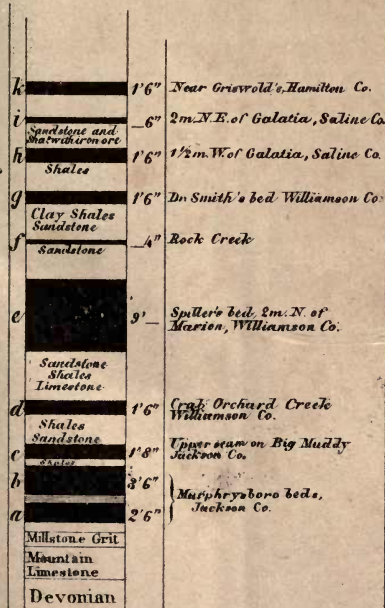 k 1'6" Near Griswold's, Hamilton Co.
i 6" 2m. N.E. of Galatia, Saline Co.
Sandstone and
Shale with iron ore
h 1'6" 1½m. W. of Galatia, Saline Co.
Shales
g 1'6" Dr. Smith's bed Williamson Co.
Clay Shales
Sandstone
f 4" Rock Creek
Sandstone
e 9' Spiller's bed, 2m. N. of
Marion, Williamson Co.
Sandstone
Shales
Limestone
d 1'6" Crab Orchard Creek
Williamson Co.
Shales
Sandstone
c 1'8" Upper seam on Big Muddy
Jackson Co.
Shales
b 3'6" Murphrysboro beds,
Jackson Co.
a 2'6"
Millstone Grit
Mountain
Limestone
Devonian